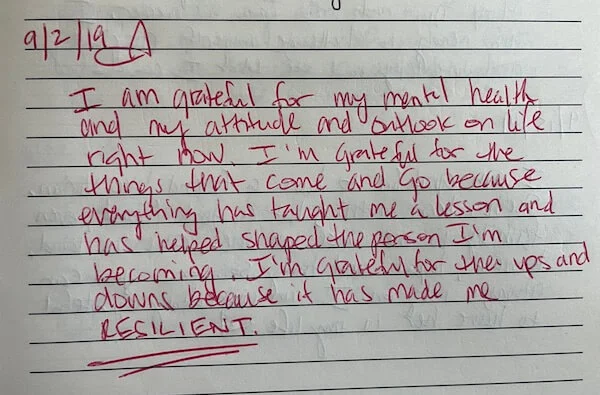 9/2/19
I am grateful for my mental health
and my attitude and outlook on life
right now. I'm grateful for the
things that come and go because
everything has taught me a lesson and
has helped shaped the person I'm
becoming. I'm grateful for the ups and
downs because it has made me
RESILIENT.